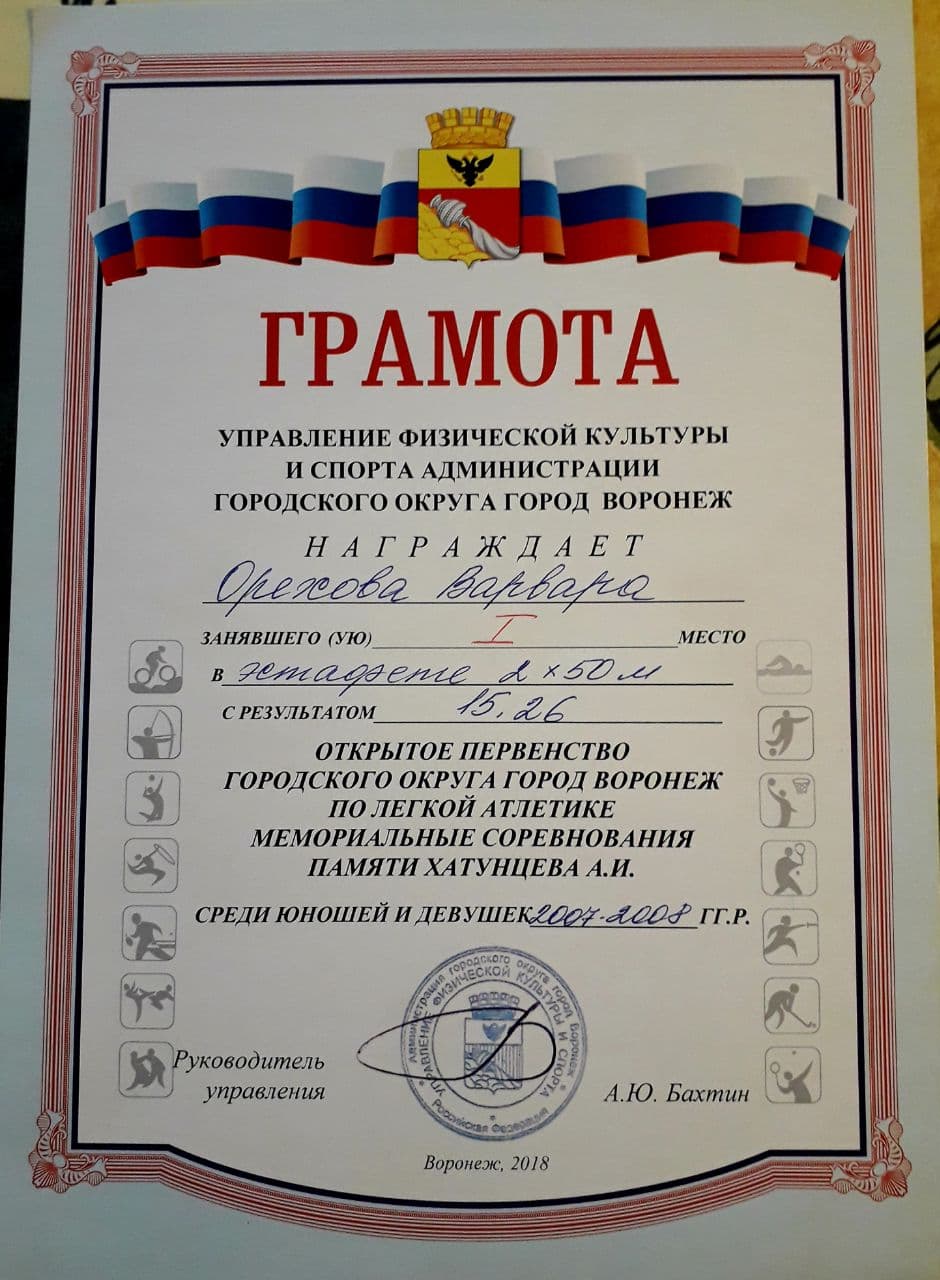 ГРАМОТА
УПРАВЛЕНИЕ ФИЗИЧЕСКОЙ КУЛЬТУРЫ
И СПОРТА АДМИНИСТРАЦИИ
ГОРОДСКОГО ОКРУГА ГОРОД ВОРОНЕЖ
НАГРАЖДАЕТ
Орехова Варвара
ЗАНЯВШЕГО (УЮ) I МЕСТО
В эстафете 2 х 50 м
С РЕЗУЛЬТАТОМ 15,26
ОТКРЫТОЕ ПЕРВЕНСТВО
ГОРОДСКОГО ОКРУГА ГОРОД ВОРОНЕЖ
ПО ЛЕГКОЙ АТЛЕТИКЕ
МЕМОРИАЛЬНЫЕ СОРЕВНОВАНИЯ
ПАМЯТИ ХАТУНЦЕВА А.И.
СРЕДИ ЮНОШЕЙ И ДЕВУШЕК 2007-2008 ГГ.Р.
Администрация городского округа город Воронеж
УПРАВЛЕНИЕ ФИЗИЧЕСКОЙ КУЛЬТУРЫ И СПОРТА
Российская Федерация
Руководитель
управления
А.Ю. Бахтин
Воронеж, 2018